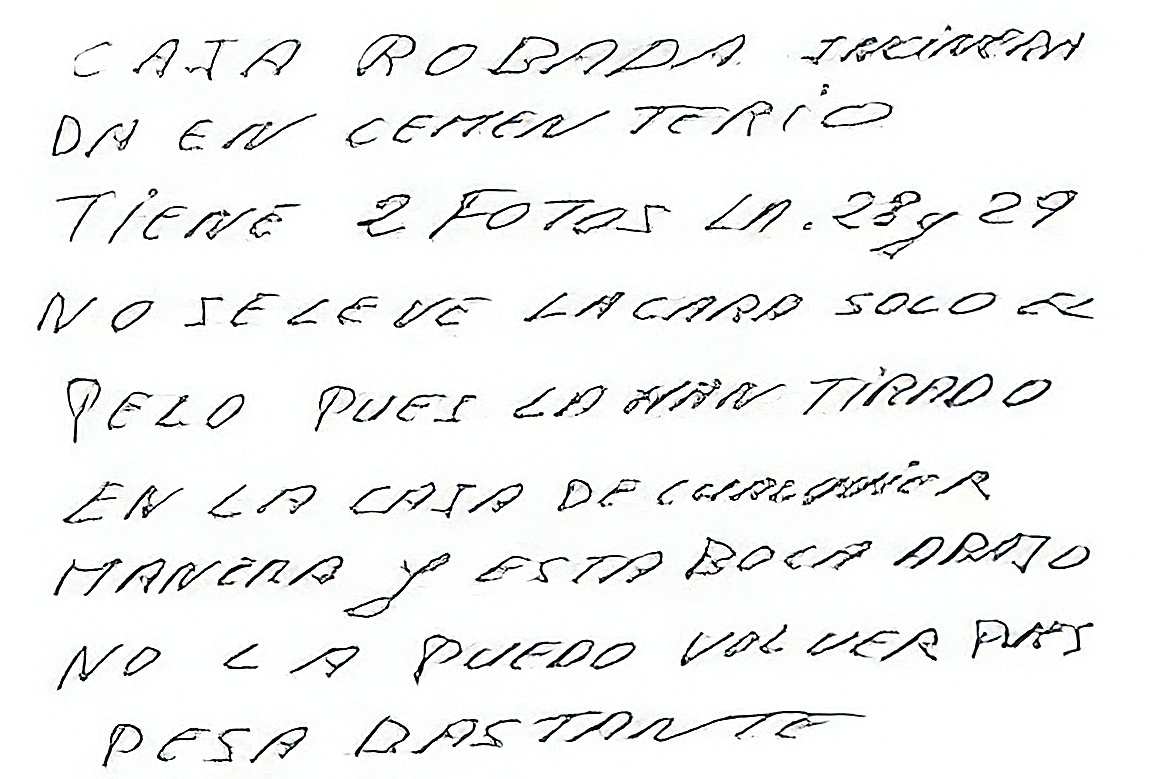 CAJA ROBADA INCINERA
DA EN CEMENTERIO
TIENE 2 FOTOS LA.28 y 29
NO SE LE VE LA CARA SOLO EL
PELO PUES LA HAN TIRADO
EN LA CAJA DE CUALQUIER
MANERA y ESTA BOCA ABAJO
NO LA PUEDO VOLVER PUES
PESA BASTANTE